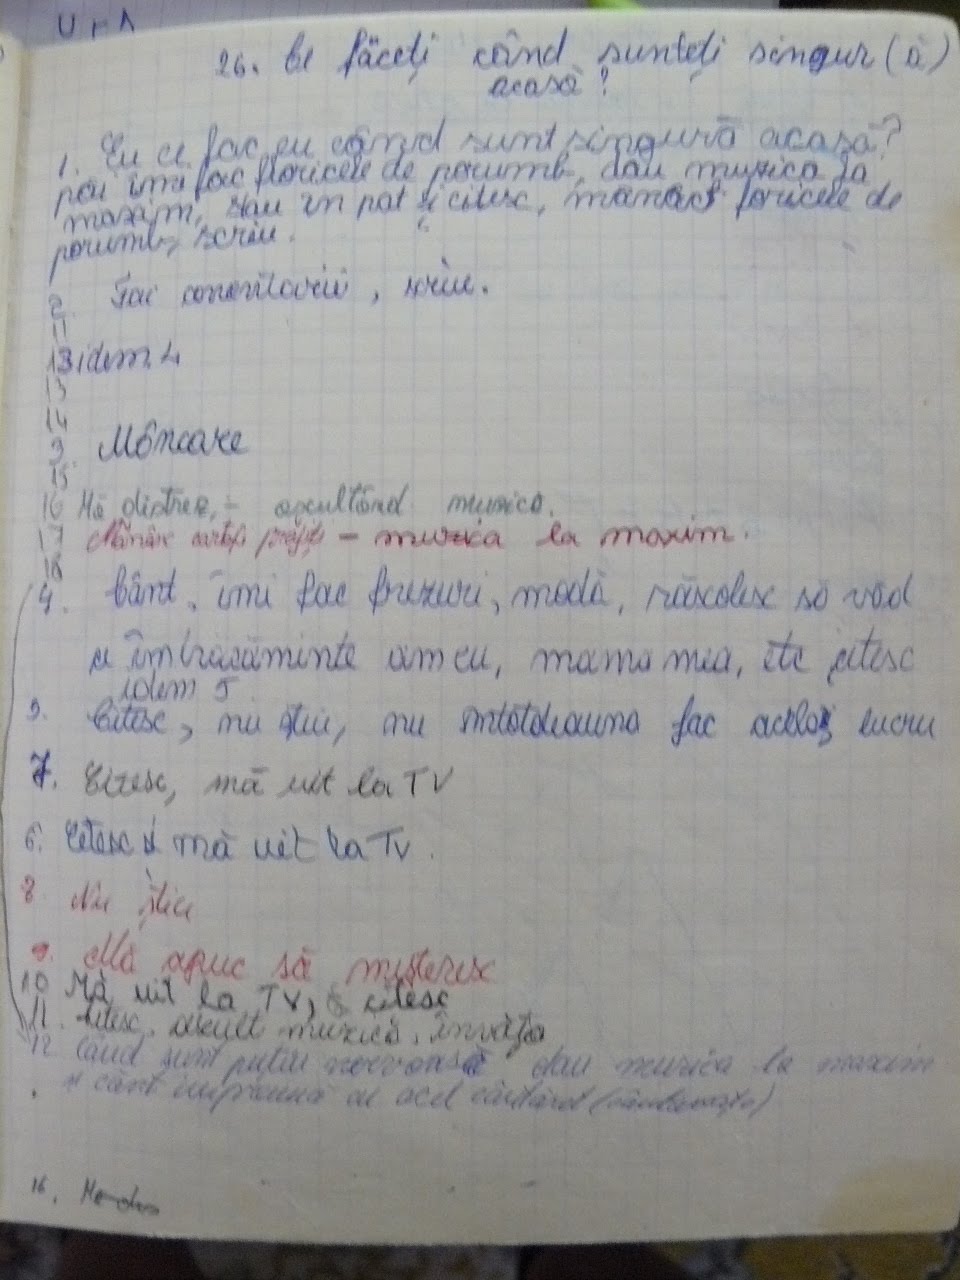 26. Ce făceți când sunteți singur (ă)
acasă?
1. Eu ce fac eu când sunt singură acasă?
păi îmi fac floricele de porumb, dau muzica la
maxim, stau în pat și citesc, mănânc floricele de
porumb, scriu.
2. Fac comentarii, scriu.
11
13 idem 4
13
14
3. Mâncare
15
16 Mă distrez, - ascultând muzica.
17 Mănânc cartofi prăjiți - muzica la maxim.
18
4. Cânt, îmi fac frezuri, modă, răscolesc să văd
ce îmbrăcăminte am eu, mama mea, etc citesc
idem 5
5. Citesc, nu știu, nu întotdeauna fac același lucru
7. Citesc, mă uit la TV
6. Citesc și mă uit la TV.
8. Nu știu
9. Mă apuc să
10 Mă uit la TV, citesc
11. Citesc, ascult muzică, învăț
12 Când sunt puțin nervoasă dau muzica la maxim
și cânt împreună cu acel cântăreț (cântăreață)
16.